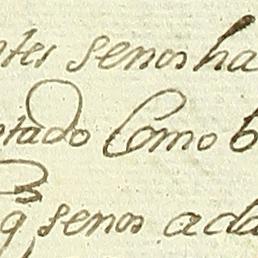 ntes senos ha
ptado Como b
q senos ada